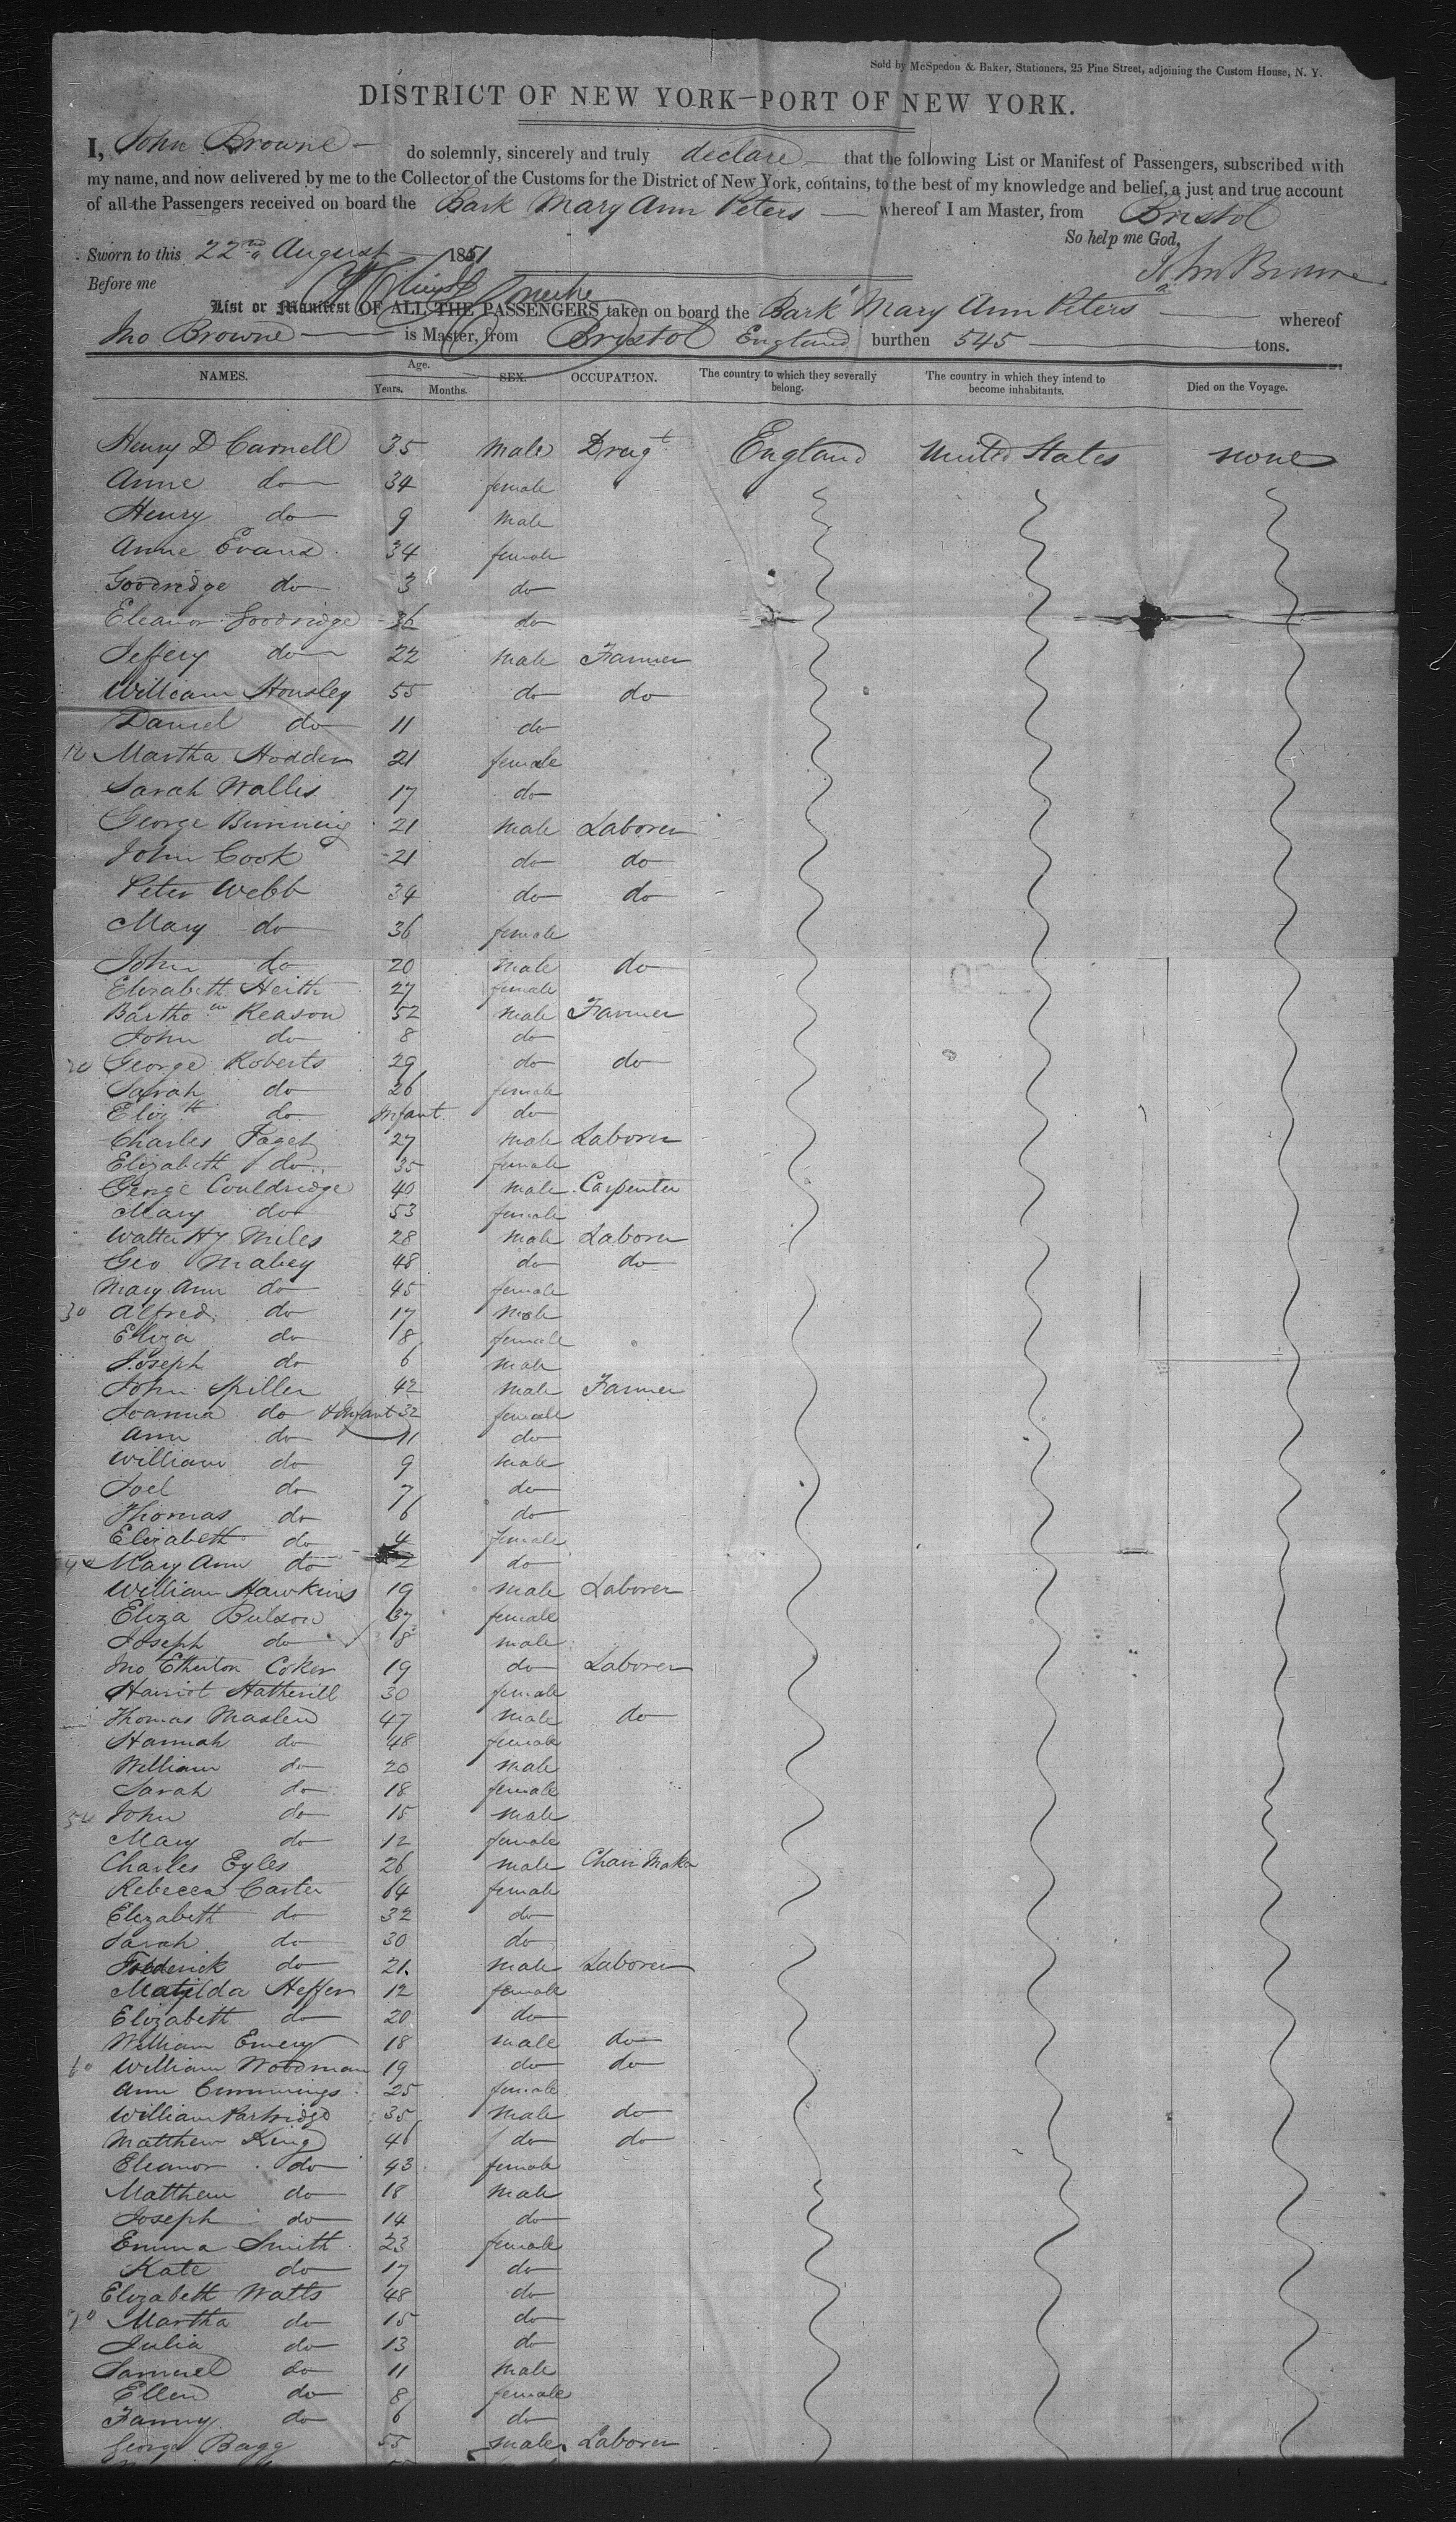 Sold by McSpedon & Baker, Stationers, 25 Pine Street, adjoining the Custom House, N. Y.
DISTRICT OF NEW YORK—PORT OF NEW YORK.
I, John Browne do solemnly, sincerely and truly declare that the following List or Manifest of Passengers, subscribed with
my name, and now delivered by me to the Collector of the Customs for the District of New York, contains, to the best of my knowledge and belief, a just and true account
of all the Passengers received on board the Bark Mary Ann Peters whereof I am Master, from Bristol
So help me God,
Sworn to this 22nd August 1851
John Browne
Before me
List or Manifest OF ALL THE PASSENGERS taken on board the Bark Mary Ann Peters whereof
Jno Browne is Master, from Bristol England burthen 545 tons.
NAMES. Age. Years. Months. SEX. OCCUPATION. The country to which they severally belong. The country in which they intend to become inhabitants. Died on the Voyage.
Henry D Carnell 35 male Drugt England United States none
Anne do 34 female
Henry do 9 male
Anne Evans 34 female
Goodridge do 3 do
Eleanor Goodridge 36 do
Jeffery do 22 male Farmer
William Housley 55 do do
Daniel do 11 do
Martha Hodder 21 female
Sarah Wallis 17 do
George 21 male Laborer
John Cook 21 do do
Peter Webb 34 do do
Mary do 36 female
John do 20 male do
Elizabeth Heith 27 female
Barthow Reason 52 male Farmer
John do 8 do
20 George Roberts 29 do do
Sarah do 26 female
Elizth do Infant do
Charles Faget 27 male Laborer
Elizabeth do 35 female
George Couldridge 40 male Carpenter
Mary do 53 female
Walter Hy Miles 28 male Laborer
Geo Mabey 48 do do
Mary Ann do 45 female
30 Alfred do 17 male
Eliza do 8 female
Joseph do 6 male
John Spiller 42 male Farmer
Joanna do & Infant 32 female
Ann do 11 do
William do 9 male
Joel do 7 do
Thomas do 6 do
Elizabeth do 4 female
40 Mary Ann do 2 do
William Hawkins 19 male Laborer
Eliza Bulson 37 female
Joseph do 8 male
Jno Etherton Coker 19 do Laborer
Harriot Hatherill 30 female
Thomas Maslen 47 male do
Hannah do 48 female
William do 20 male
Sarah do 18 female
50 John do 15 male
Mary do 12 female
Charles Eyles 26 male Chair Maker
Rebecca Carter 64 female
Elizabeth do 32 do
Sarah do 30 do
Frederick do 21 male Laborer
Matilda Heffer 12 female
Elizabeth do 20 do
William Emery 18 male do
60 William Woodman 19 do do
Ann Cummings 25 female
William Partridge 35 male do
Matthew King 46 do do
Eleanor do 43 female
Matthew do 18 male
Joseph do 14 do
Emma Smith 23 female
Kate do 17 do
Elizabeth Watts 48 do
70 Martha do 15 do
Julia do 13 do
Samuel do 11 male
Ellen do 8 female
Fanny do 6 do
George Bagg 55 male Laborer